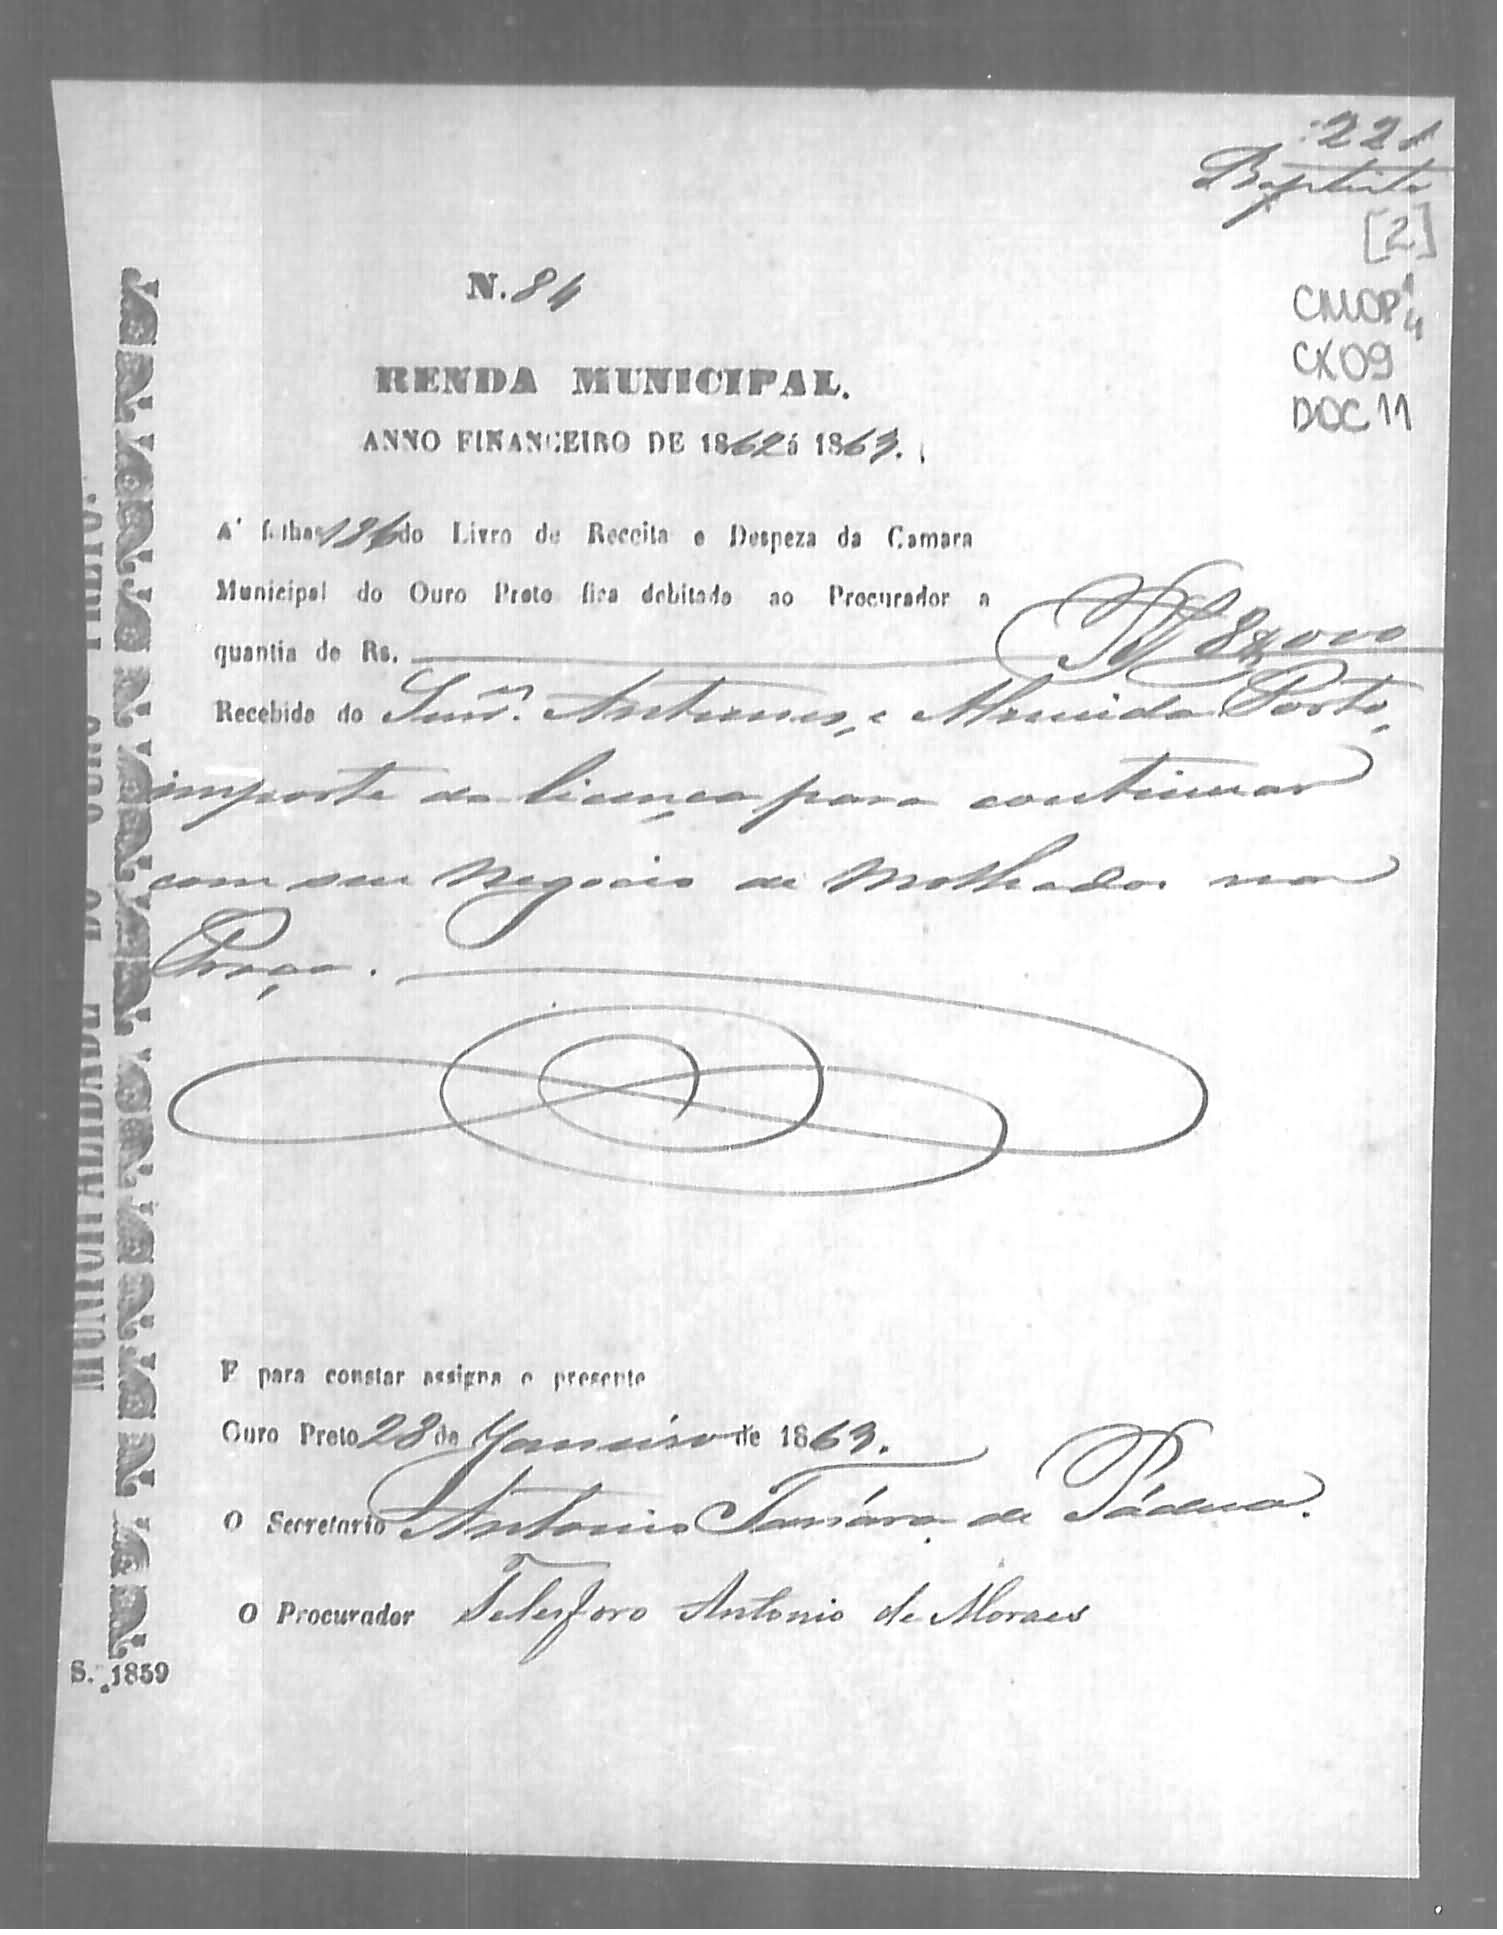 221
Baptista
[2]
CMOP 1 4
CX 09
DOC 11
N. 84
RENDA MUNICIPAL.
ANNO FINANCEIRO DE 1862 á 1863.
A' folhas do Livro de Receita e Despeza da Camara
Municipal do Ouro Preto fica debitado ao Procurador a
quantia de Rs. 8$000
Recebida do Antunes, e Almeida Porto,
importe da licença para continuar
com seu Negocio de Molhados na
Praça.
E para constar assigna o presente
Ouro Preto 28 de Janeiro de 1863.
O Secretario Antonio de Pádua.
O Procurador Telesforo Antonio de Moraes
S. 1859
MUNICIPALIDADE DO OURO PRETO.